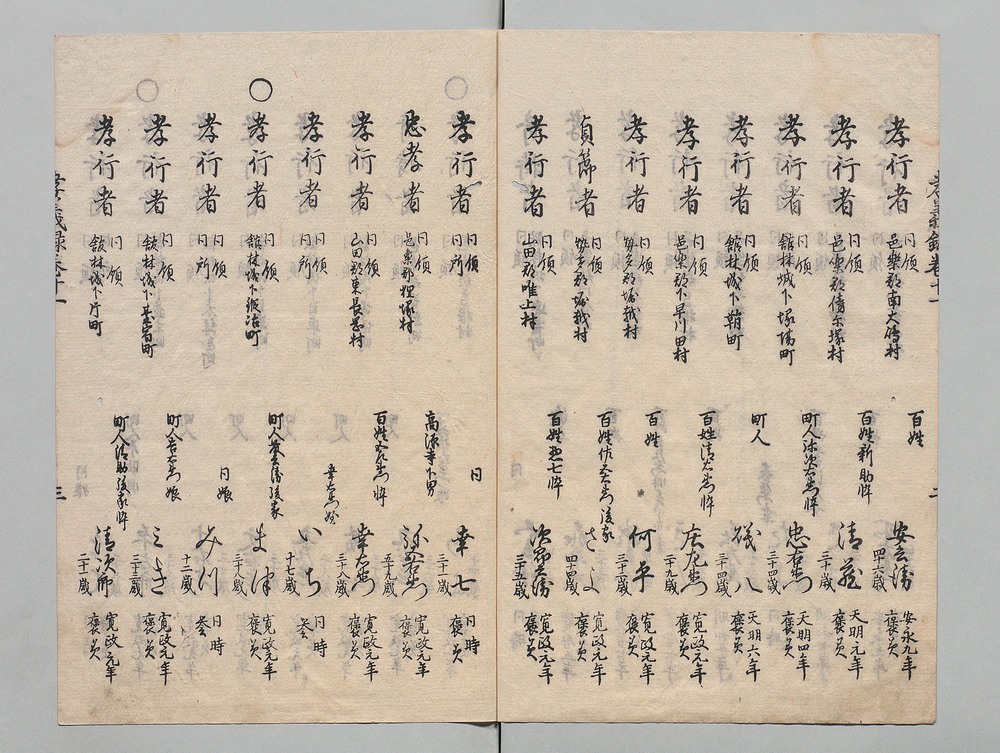 孝行者 同領 邑樂郡南大嶋村 百姓 安兵衛 四十六歳 安永九年 褒美
孝行者 同領 邑樂郡傍示塚村 百姓新助悴 清蔵 三十歳 天明元年 褒美
孝行者 同領 館林城下塚場町 町人弥次右衛門悴 忠右衛門 三十四歳 天明四年 褒美
孝行者 同領 館林城下鞘町 町人 磯八 三十四歳 天明六年 褒美
孝行者 同領 邑樂郡下早川田村 百姓清左衛門悴 庄左衛門 二十九歳 寛政元年 褒美
孝行者 同領 勢多郡堀越村 百姓 何平 三十二歳 寛政元年 褒美
貞節者 同領 勢多郡堀越村 百姓佐五右衛門後家 さよ 四十四歳 寛政元年 褒美
孝行者 同領 山田郡唯上村 百姓惣七悴 次郎兵衛 三十五歳 寛政元年 褒美
孝義録卷十一 二
孝行者 同領 同所 同 幸七 三十一歳 同時 褒美
忠孝者 同領 邑樂郡狸塚村 高源寺下男 弥右衛門 五十九歳 寛政元年 褒美
孝行者 同領 山田郡東長岡村 百姓 悴 幸右衛門 三十八歳 寛政元年 褒美
孝行者 同領 同所 幸右衛門姪 いち 十七歳 同時 褒美
孝行者 同領 館林城下鍛冶町 町人 兵衛後家 まつ 三十八歳 寛政元年 褒美
孝行者 同領 同所 同娘 みつ 十二歳 同時 褒美
孝行者 同領 館林城下 町 町人 右衛門娘 ミき 三十三歳 寛政元年 褒美
孝行者 同領 館林城下片町 町人清助後家悴 清次郎 二十一歳 寛政元年 褒美
孝義録卷十一 三